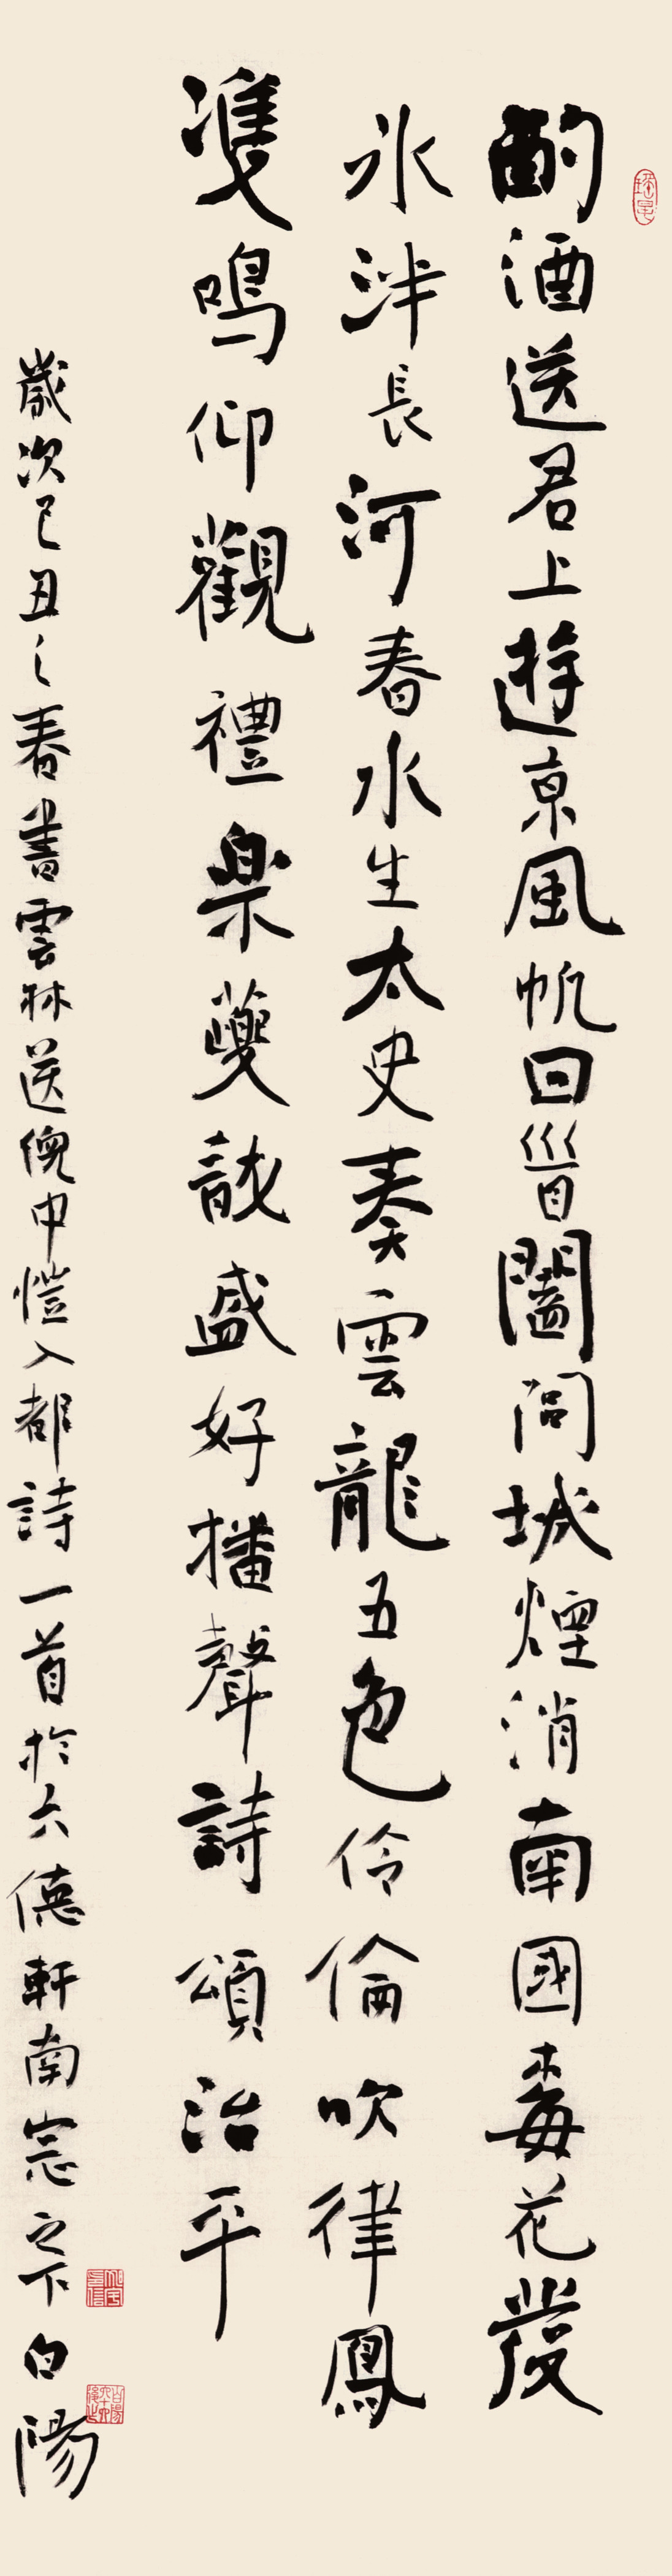 酌酒送君上遊京風帆回首闔閭城煙消南國梅花發
冰泮長河春水生太史奏雲龍五色伶倫吹律鳳
雙鳴仰觀禮樂夔龍盛好播聲詩頌治平
歲次己丑之春書雲林送倪中愷入都詩一首於六德軒南窗之下白陽